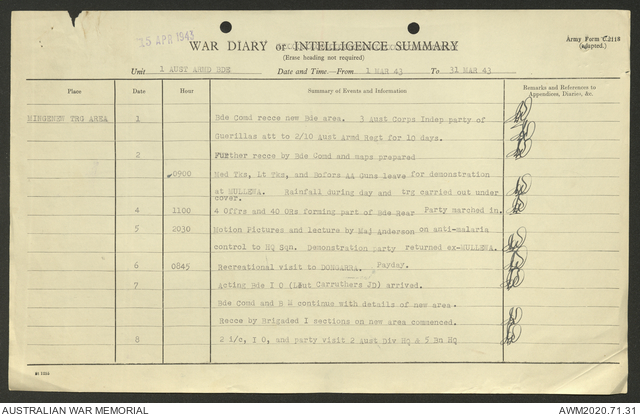 15 APR 1943
WAR DIARY or INTELLIGENCE SUMMARY
(Erase heading not required)
Army Form C.2118
(adapted.)
Unit 1 AUST ARMD BDE Date and Time—From 1 MAR 43 To 31 MAR 43
Place Date Hour Summary of Events and Information Remarks and References to Appendices, Diaries, &c.
MINGENEW TRG AREA 1 Bde Comd recce new Bde area. 3 Aust Corps Indep party of
Guerillas att to 2/10 Aust Armd Regt for 10 days.
2 Further recce by Bde Comd and maps prepared
0900 Med Tks, Lt Tks, and Bofors AA Guns leave for demonstration
at MULLEWA. Rainfall during day and trg carried out under
cover.
4 1100 4 Offrs and 40 ORs forming part of Bde Rear Party marched in.
5 2030 Motion Pictures and lecture by Maj Anderson on anti-malaria
control to HQ Sqn. Demonstration party returned ex-MULLEWA.
6 0845 Recreational visit to DONGARRA. Payday.
7 Acting Bde I O (Lieut Carruthers JD) arrived.
Bde Comd and B M continue with details of new area.
Recce by Brigaded I sections on new area commenced.
8 2 i/c, I O, and party visit 2 Aust Div HQ & 5 Bn HQ
AUSTRALIAN WAR MEMORIAL
AWM2020.71.31